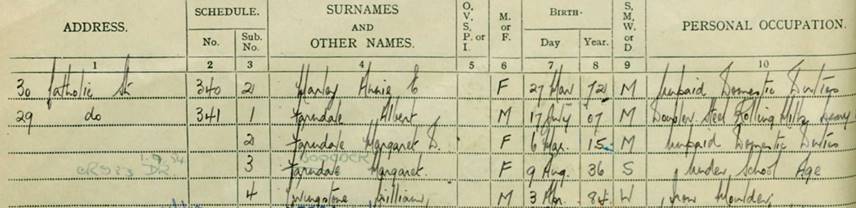 ADDRESS. SCHEDULE. SURNAMES AND OTHER NAMES. O, V, S, P, or I M. or F. BIRTH— S, M, W, or D PERSONAL OCCUPATION.
No. Sub. No. Day Year.
1 2 3 4 5 6 7 8 9 10
30 Catholic St 340 2 Manley Annie E F 27 Mar 72 M Unpaid Domestic Duties
29 do 341 1 Farndale Albert M 17 July 07 M Doubler Steel Rolling Mills Heavy
2 Farndale Margaret F 6 Mar. 15 M Unpaid Domestic Duties
3 Farndale Margaret. F 9 Aug. 36 S Under School Age
4 Livingstone William M 3 84 W Iron Moulder